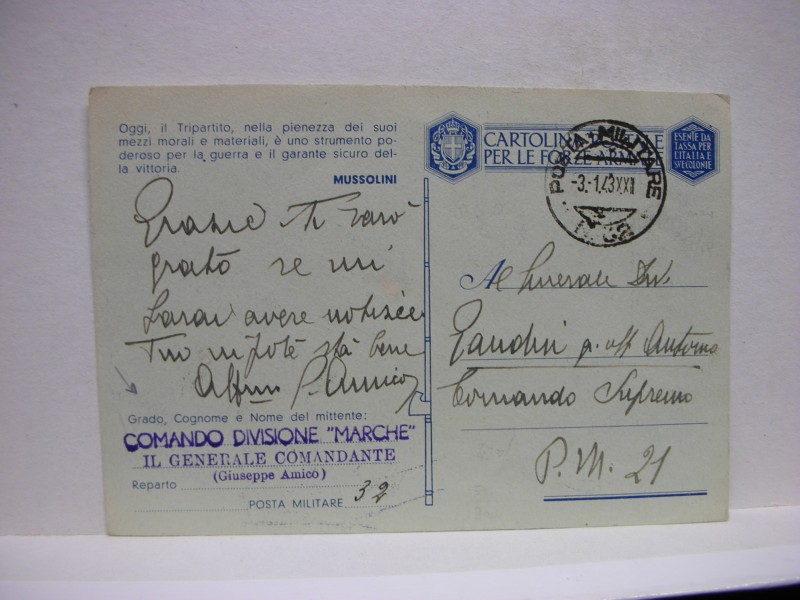 Oggi, il Tripartito, nella pienezza dei suoi
mezzi morali e materiali, è uno strumento po-
deroso per la guerra e il garante sicuro del-
la vittoria.
MUSSOLINI
Grazie Ti sarò
grato se mi
farai avere notizie
Tuo nipote sta bene
G. Amico
Grado, Cognome e Nome del mittente:
COMANDO DIVISIONE "MARCHE"
IL GENERALE COMANDANTE
(Giuseppe Amico)
Reparto
POSTA MILITARE 32
CARTOLINA
PER LE FORZE ARMATE
ESENTE DA
TASSA PER
L'ITALIA E
SUE COLONIE
POSTA MILITARE
-3.-1.43XXI
Al Generale Div.
Gandin
Comando Supremo
P.M. 21